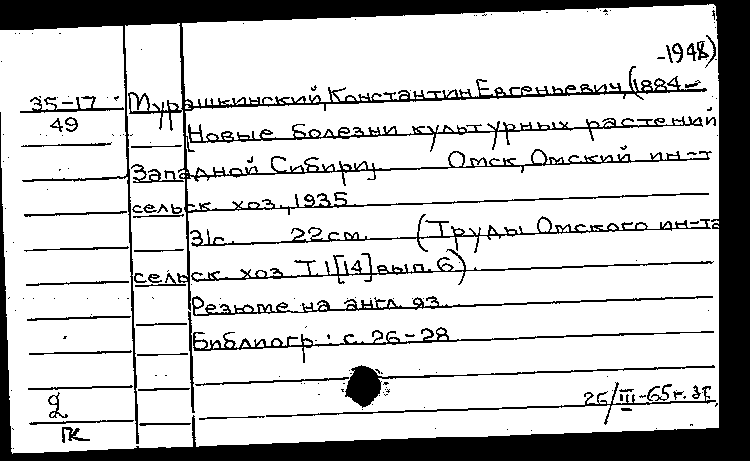 -1948)
35-17 Мурашкинский, Константин Евгеньевич, (1884-
49 Новые болезни культурных растений
Западной Сибири. Омск, Омский ин-т
сельск. хоз., 1935.
31с. 22см. (Труды Омского ин-та
сельск. хоз. Т.1[14] вып. 6).
Резюме на англ. яз.
Библиогр.: с. 26-28
26/III-65г.
ГК